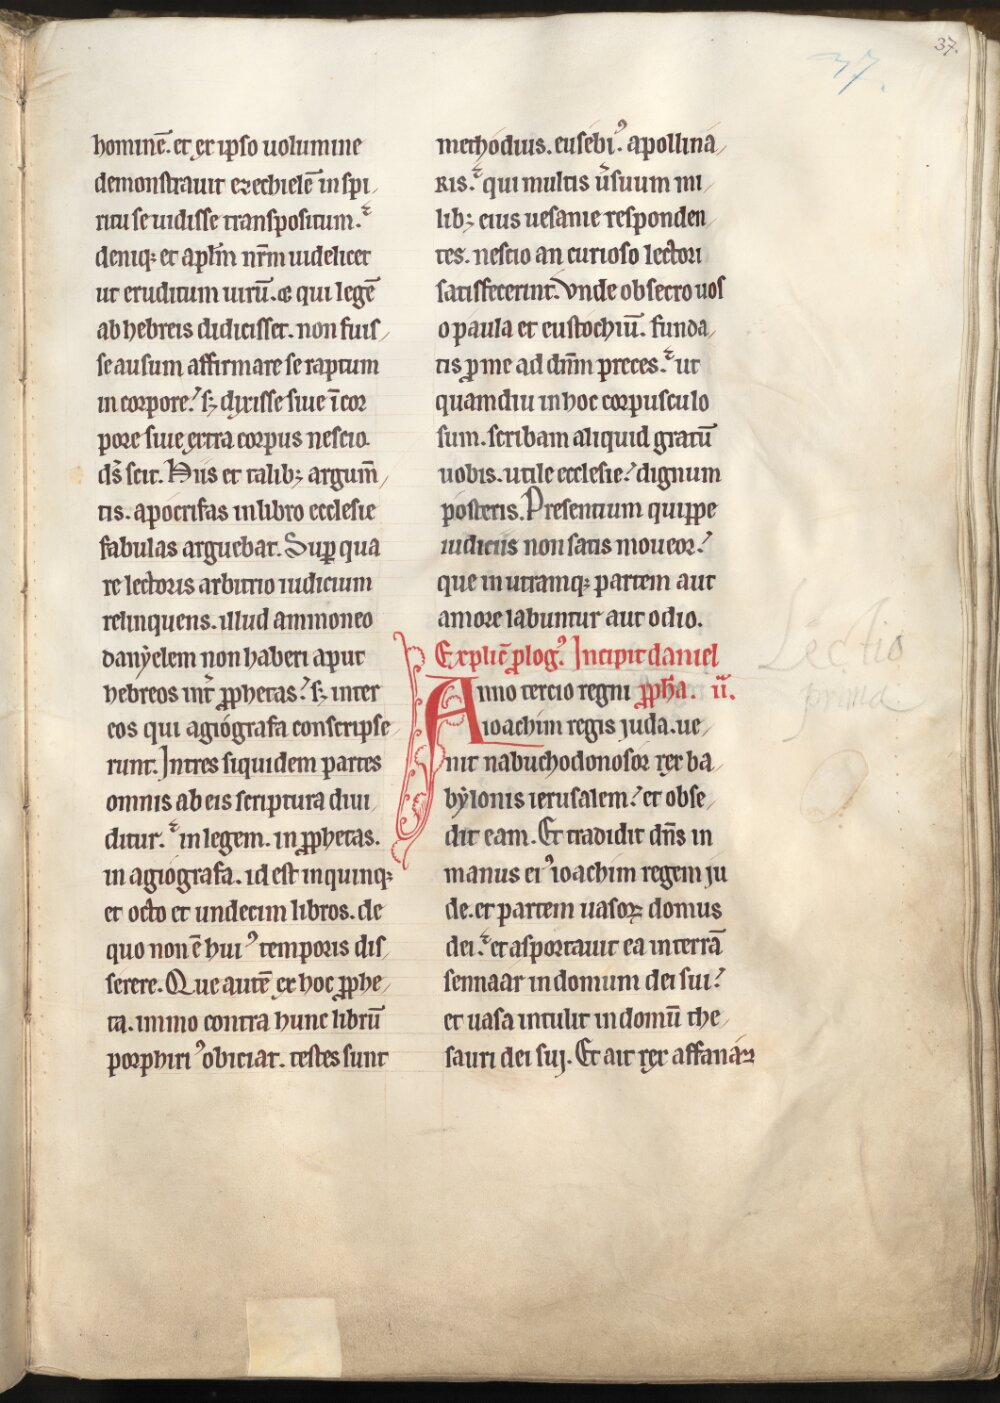 37.
37.
hominē. et ex ipso uolumine
demonstrauit ezechielē in spi
ritu se uidisse transpositum.
deniq; et aplm̄ nr̄m uidelicet
ut eruditum uirū. & qui legē
ab hebreis didicisset. non fuis
se ausum affirmare se raptum
in corpore. s; dyxisse siue ī cor
pore siue extra corpus nescio.
ds̄ scit. Hiis et talib; argum̄
tis. apocrifas in libro ecclesie
fabulas arguebat. Suꝑ qua
re lectoris arbitrio iudicium
relinquens. illud ammoneo
danẏelem non haberi aput
hebreos int̄ ꝓphetas. s; inter
eos qui agiógrafa conscripse
runt. In tres siquidem partes
omnis ab eis scriptura diui
ditur. in legem. in ꝓphetas.
in agiógrafa. id est in quinq;
et octo et undecim libros. de
quo non ē huiꝰ temporis dis
serere. Que autē ex hoc ꝓphe
ta. immo contra hunc librū
porphiriꝰ obiciat. testes sunt
methódius. eusébiꝰ. apollina
ris. qui multis u̅suum mi
lib; eius uesanie responden
tes. nescio an curioso lectori
satisfecerint. Vnde obsecro uos
o paula et eustóchiū. funda
tis ꝑ me ad dnm̄ preces. ut
quamdiu in hoc corpusculo
sum. scribam aliquid gratū
uobis. utile ecclesie. dignum
posteris. Presentium quippe
iudiciis non satis moueor.
que in utramq; partem aut
amore labuntur aut odio.
Explic̄ ꝓlogꝰ. Incipit daniel
Anno tercio regni ꝓph̄a.
ioachim regis juda. ue
nit nabuchodonosór rex ba
bẏlonis ierusalem. et obse
dit eam. Et tradidit dn̄s in
manus eiꝰ ioachim regem ju
de. et partem uasoꝝ domus
dei. et asportauit ea in terrā
sennaár in domum dei sui.
et uasa intulit in domū the
sauri dei suj. Et ait rex affanáz
Lectio
prima